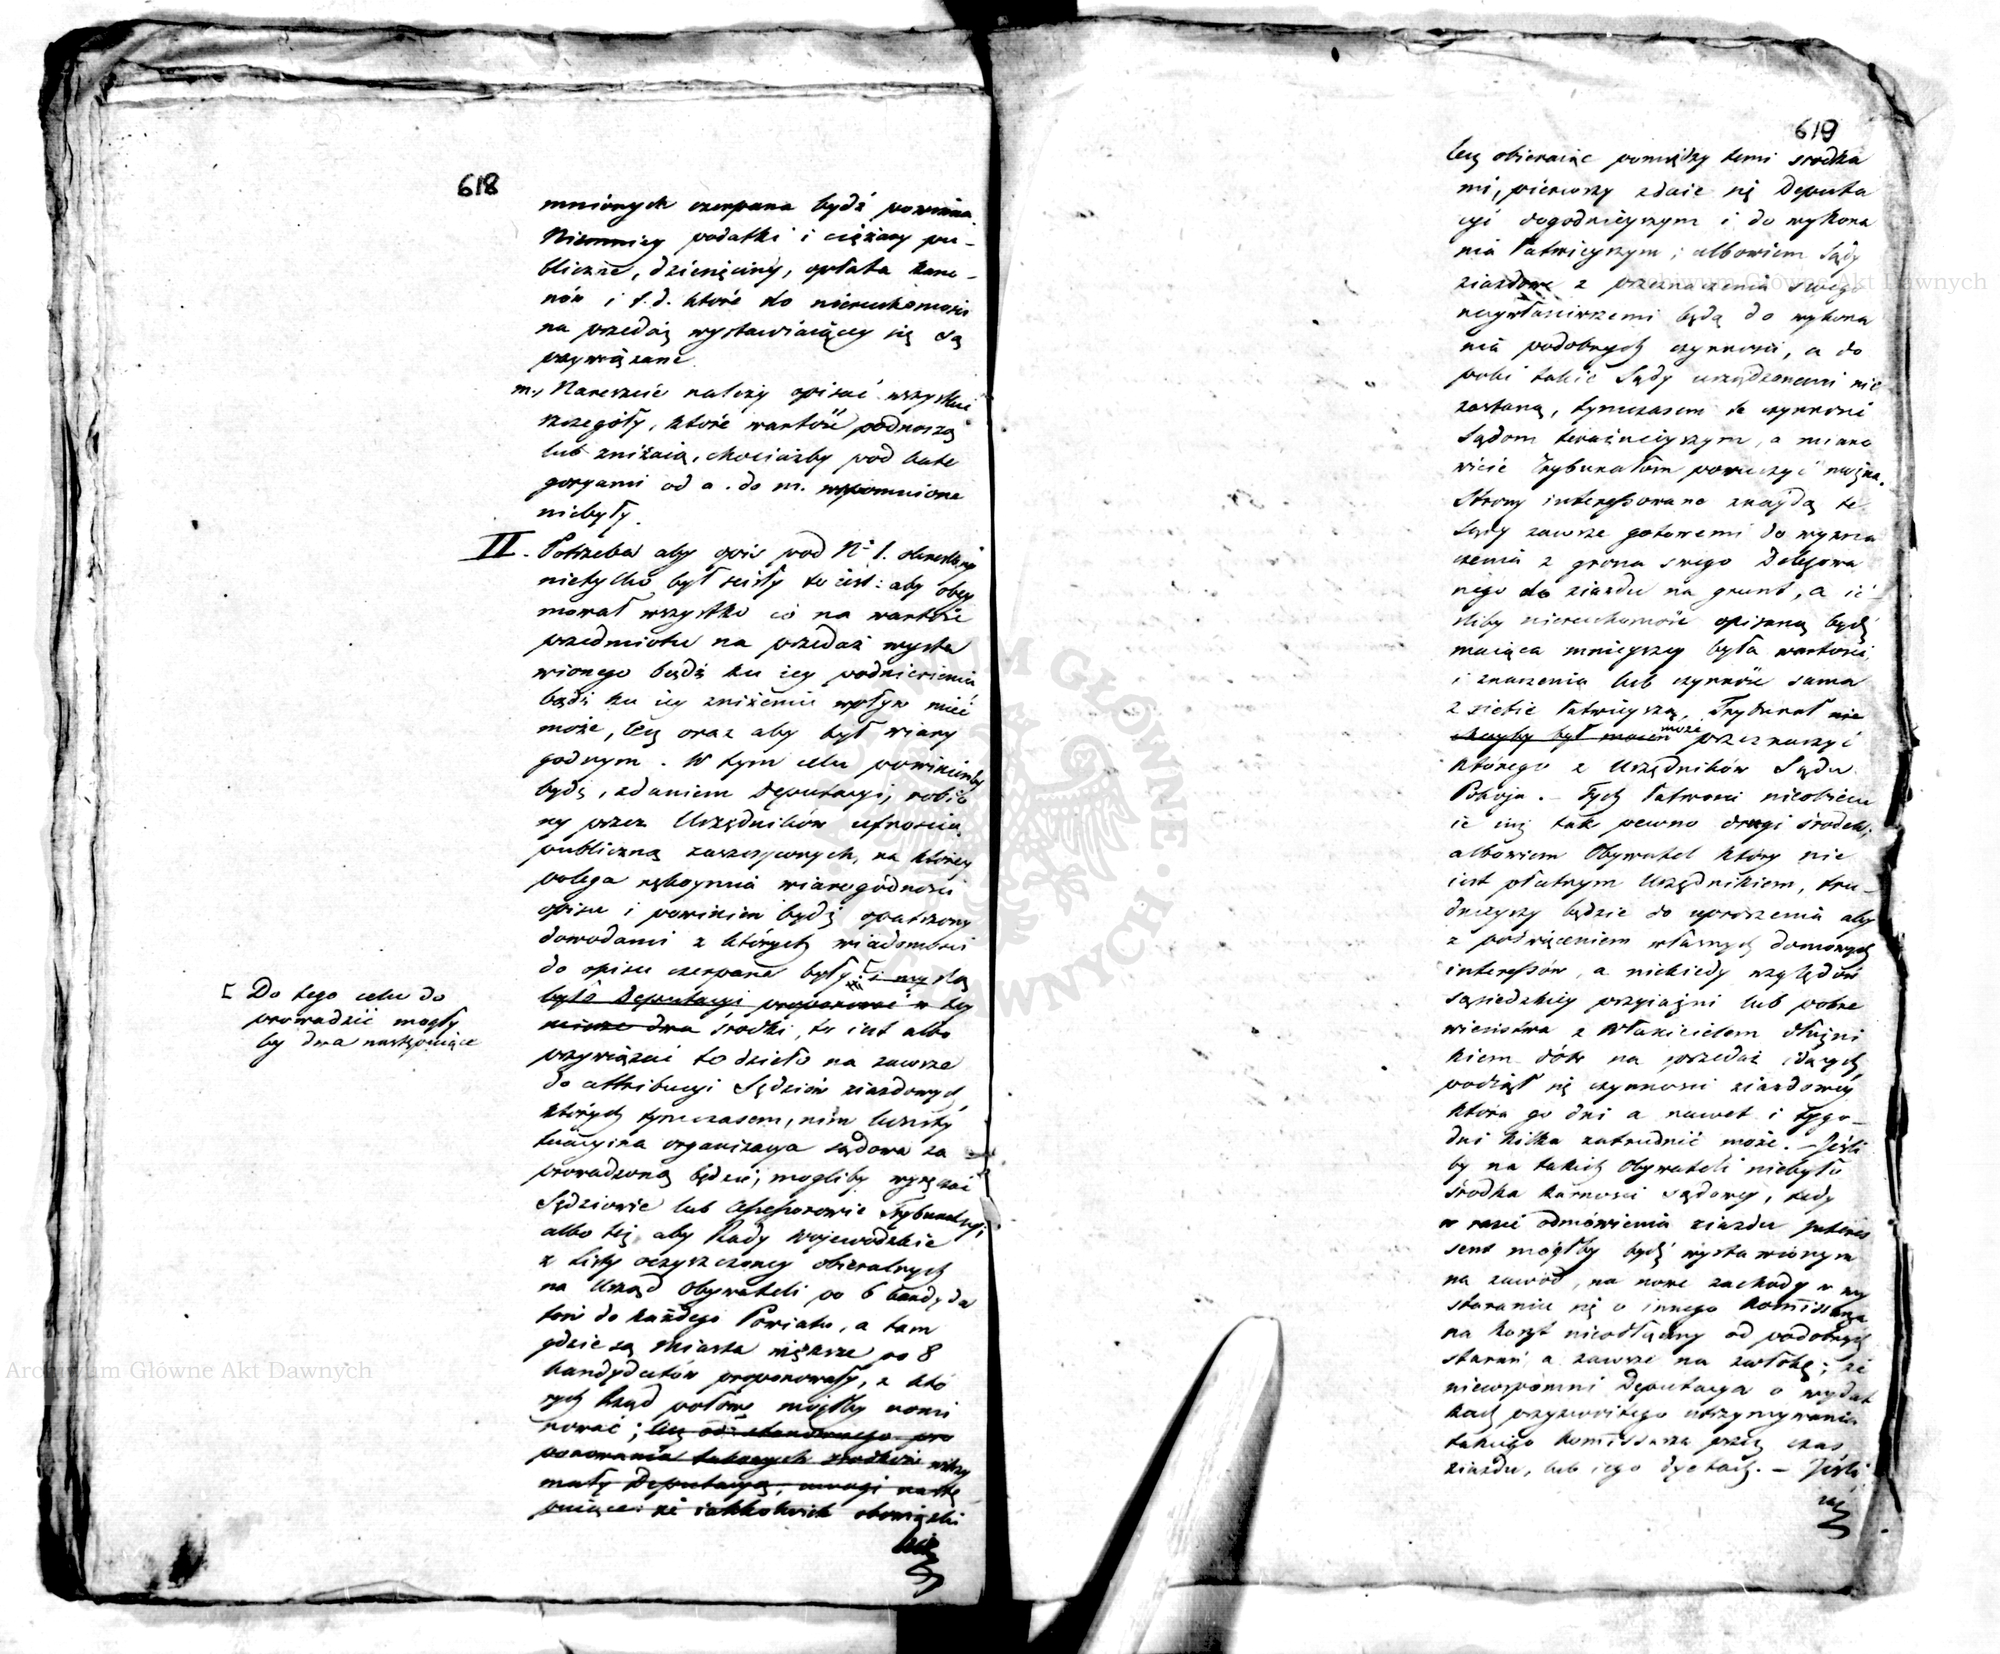 618
mnionych czerpana bydź powinna
Niemniey podatki i ciężary pu-
bliczne, dziesięciny, opłata kano-
nów i t.d. które do nieruchomości
na przedaż wystawiaiącey się są
przywiązane.
m, Nareszcie należy opisać wszystkie
szczegóły, które wartość podnoszą
lub zniżaią, chociażby pod kate
goryami od a. do m. wspomnione
niebyły.
II. Potrzeba aby opis pod N. 1. określony
nietylko był ścisły to iest: aby obey
mował wszystko co na wartość
przedmiotu na przedaż wysta
wionego bądź ku iey podniesieniu
bądź ku iey zniżeniu wpływ mieć
może, lecz oraz aby był wiary
godnym. W tym celu powinienby
bydź, zdaniem Deputacyi, robio
ny przez Urzędników ufnością
publiczną zaszczyconych, na którey
polega rękoymia wiarogodności
opisu i powinien bydź opatrzony
dowodami z których wiadomości
do opisu czerpane były. i myślą
było Deputacyi proponować w tey
mierze dwa środki, to iest albo
przywiązać to dzieło na zawsze
do attribucyi Sędziów ziazdowych,
których tymczasem, nim konsty
tucyina organizacya sądowa za
prowadzoną będzie, mogliby wyręczać
Sędziowie lub Assessorowie Trybunalscy;
albo też, aby Rady Woiewodzkie
z listy oczyszczoney obieralnych
na Urząd Obywateli po 6 kandyda
tów do każdego Powiatu, a tam
gdzie są Miasta większe po 8
kandydatów proponowały, z któ
rych Rząd połowę mógłby nomi
nować; lecz od stanowczego pro
ponowania takowych środków wstrzy
mały Deputacyą, uwagi nastę
puiące: że iakkolwiek obowiązki
[ Do tego celu do
prowadzić mogły
by dwa następuiące
619
lecz obieraiąc pomiędzy temi środka
mi, pierwszy zdaie się Deputa
cyi dogodnieyszym i do wykona
nia łatwieyszym; albowiem Sądy
ziazdowe z przeznaczenia swego
naywłaściwszemi będą do wykona
nia podobnych czynności, a do
póki takie Sądy urządzonemi nie
zostaną, tymczasem te czynności
Sądom teraźnieyszym, a miano
wicie Trybunałom poruczyć można.
Strony interessowane znaydą te
Sądy zawsze gotowemi do wyzna
czenia z grona swego Delegowa
nego do ziazdu na grunt, a ie-
śliby nieruchomość opisaną bydź
maiąca mnieyszey była wartości,
i znaczenia lub czynność sama
z siebie łatwieyszą, Trybunał nie
może
przeznaczyć
którego z Urzędników Sądu
Pokoju. – Tych łatwości nieobiecu
ie iuż tak pewno drugi środek;
albowiem Obywatel który nie
iest płatnym Urzędnikiem, tru-
dnieyszy będzie do uproszenia aby
z poświęceniem własnych domowych
interessów, a niekiedy względów
sąsiedzkiey przyiaźni lub pokre
wieństwa z Właścicielem dłużni
kiem dóbr na przedaż idących,
podiął się czynności ziazdowey
która go dni a nawet i tygo-
dni kilka zatrudnić może. – Jeśli
by na takich Obywateli niebyło
środka karności sądowey, tedy
w razie odmówienia ziazdu Interes
sent mógłby bydź wystawionym
na zawód, na nowe zachody w wy
staraniu się o innego Kommissarza
na koszt nieodłączny od podobnych
starań a zawsze na zwłokę; że
niewspomni Deputacya o wydat
kach przyzwoitego utrzymywania
takiego Kommissarza przez czas
ziazdu, lub iego dyetach. – Jeśli